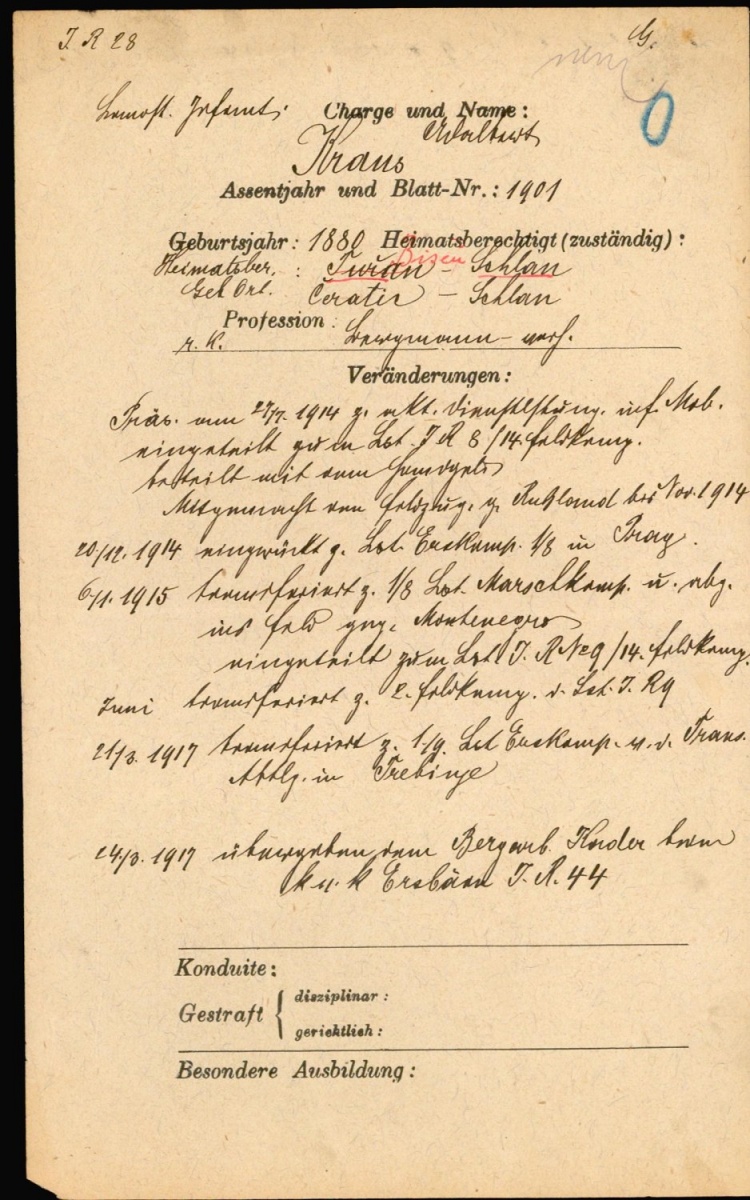 I. R 28
G.
Landst. Infant. Charge und Name:
Adalbert
Kraus
Assentjahr und Blatt-Nr.: 1901
Geburtsjahr: 1880 Heimatsberechtigt (zuständig):
Heimatsber. : Turan - Schlan
Geb Ort. Ceratic - Schlan
Profession:
r. K. Bergmann - verh.
Veränderungen:
Präs. am 27/7. 1914 z. akt. Dienstlstung. inf. Mob.
eingeteilt zum Lst. I R 8/14. Feldkomp.
beteilt mit dem Handgeld
Mitgemacht den Feldzug. g. Rußland bis Nov. 1914
20/12. 1914 eingerückt z. Lst. Erskomp. 1/8 in Prag.
6/1. 1915 transferiert z. 1/8 Lst. Marschkomp. u. abg.
ins Feld geg. Montenegro
eingeteilt zum Lst. I. R No 9/14. Feldkomp.
Juni transferiert z. 2. Feldkomp. d. Lst. I. R 9
21/3. 1917 transferiert z. 1/9. Lst Erskomp. v. d. Trans.
Abtlg. in Trebinje
24/3. 1917 übergeben dem Bergarb. Kader beim
k u. k Ersbaon I. R. 44
Konduite:
Gestraft { disziplinar:
gerichtlich:
Besondere Ausbildung: